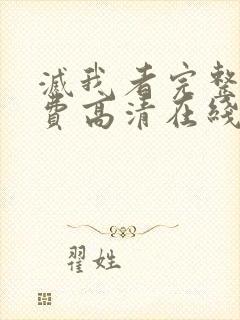 滅我看完整
費高清在綫
翟姓